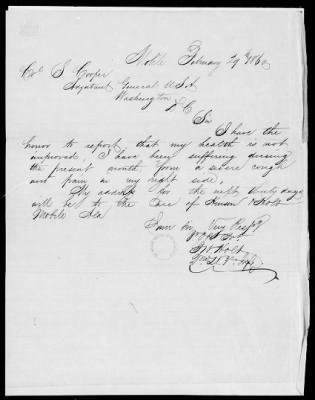 Mobile February 29th 1860
Col S. Cooper
Adjutant General U S A
Washington
D C
Sir
I have the
honor to report that my health is not
improved, I have been suffering during
the present month from a severe cough
and pain in my right side,
My address for the next thirty days
will be to the Care of Holt
Mobile Ala
I am Sir Very Respy
Yr Obt Svt
Holt